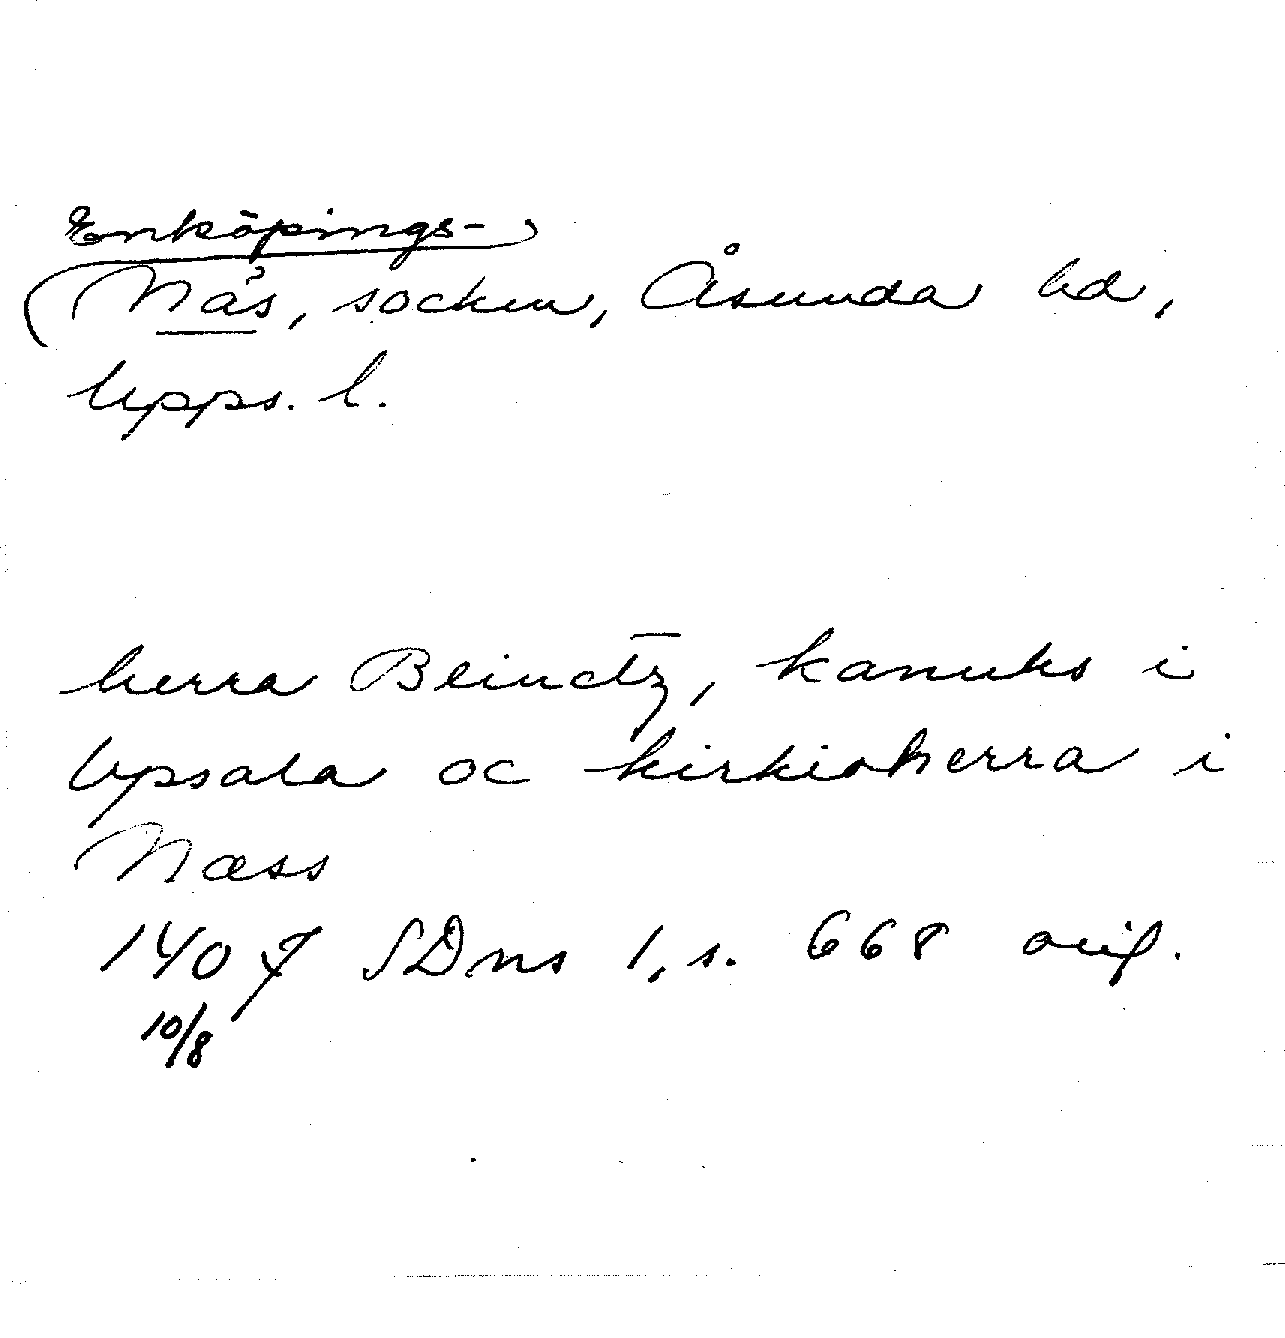 Enköpings-
Näs, socken, Åsunda hd,
Upps. l.
herra Beinctz, kanuks i
Upsala oc kirkioherra i
Næss
1407 SDns 1, s. 668 orig.
10/8